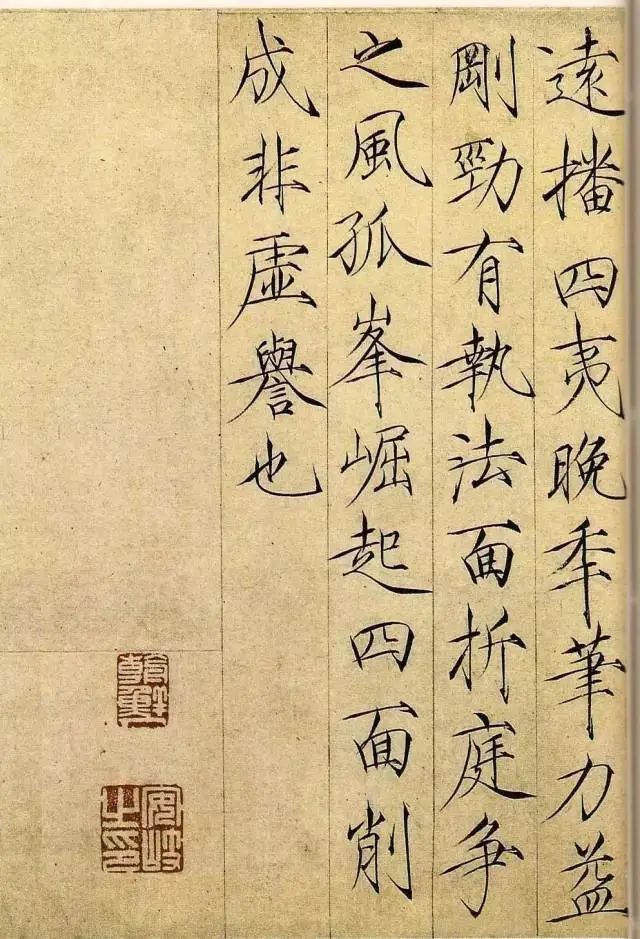 遠播四夷晚年筆力益
剛勁有執法面折庭争
之風孤峯崛起四面削
成非虛譽也
朝鮮
安岐之印